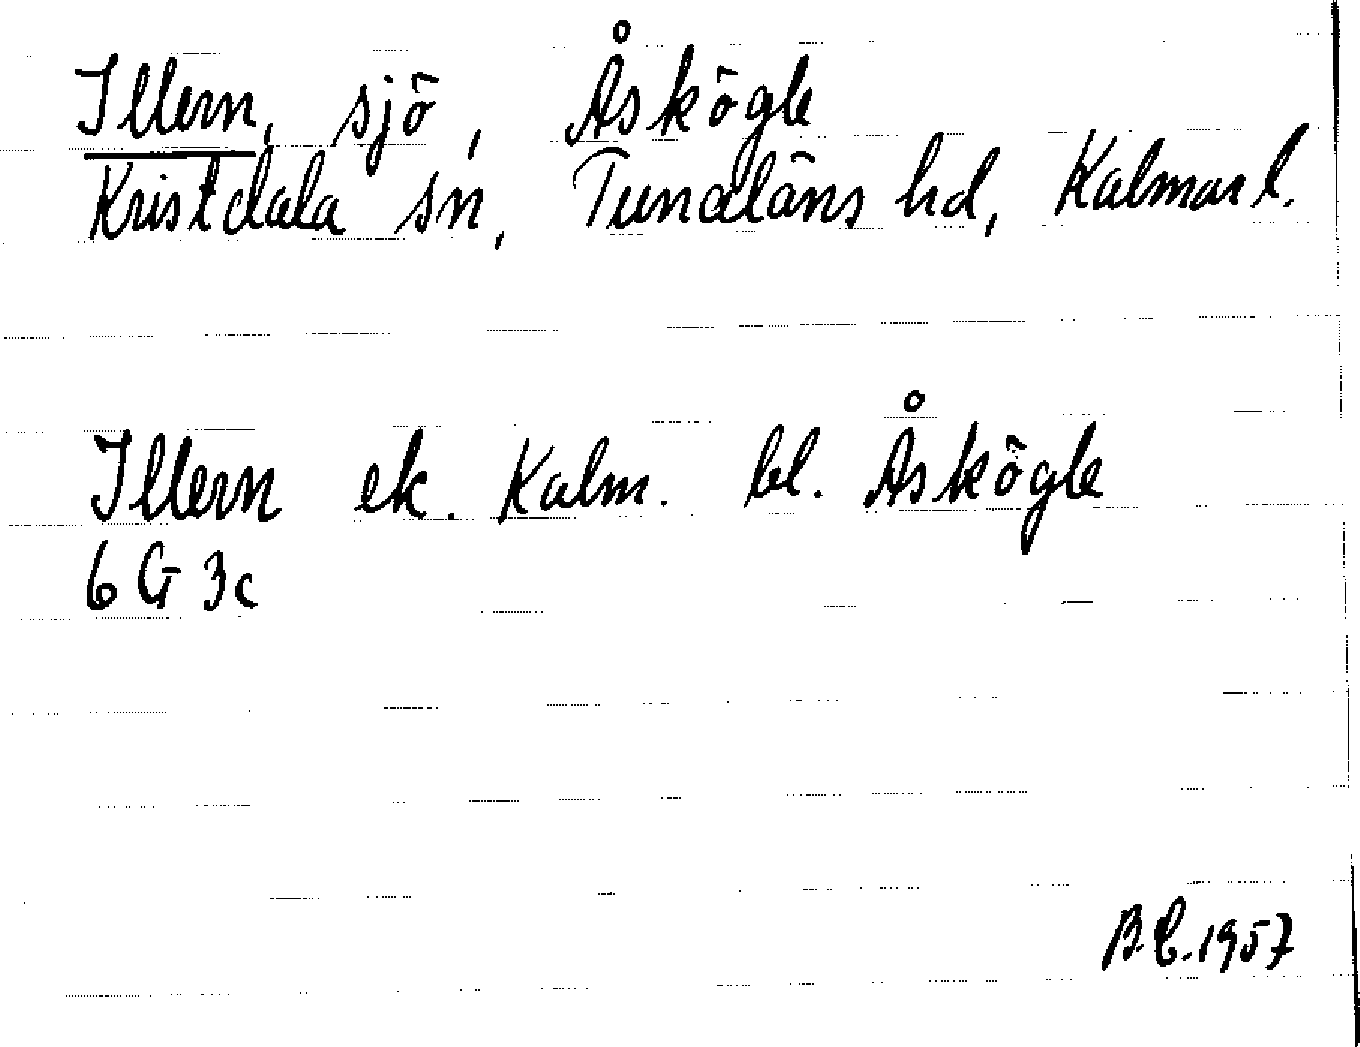 Illern, sjö, Åskögle
Kristdala sn, Tunaläns hd, Kalmar l.
Illern ek. Kalm. bl. Åskögle
6 G 3c
B.C. 1957